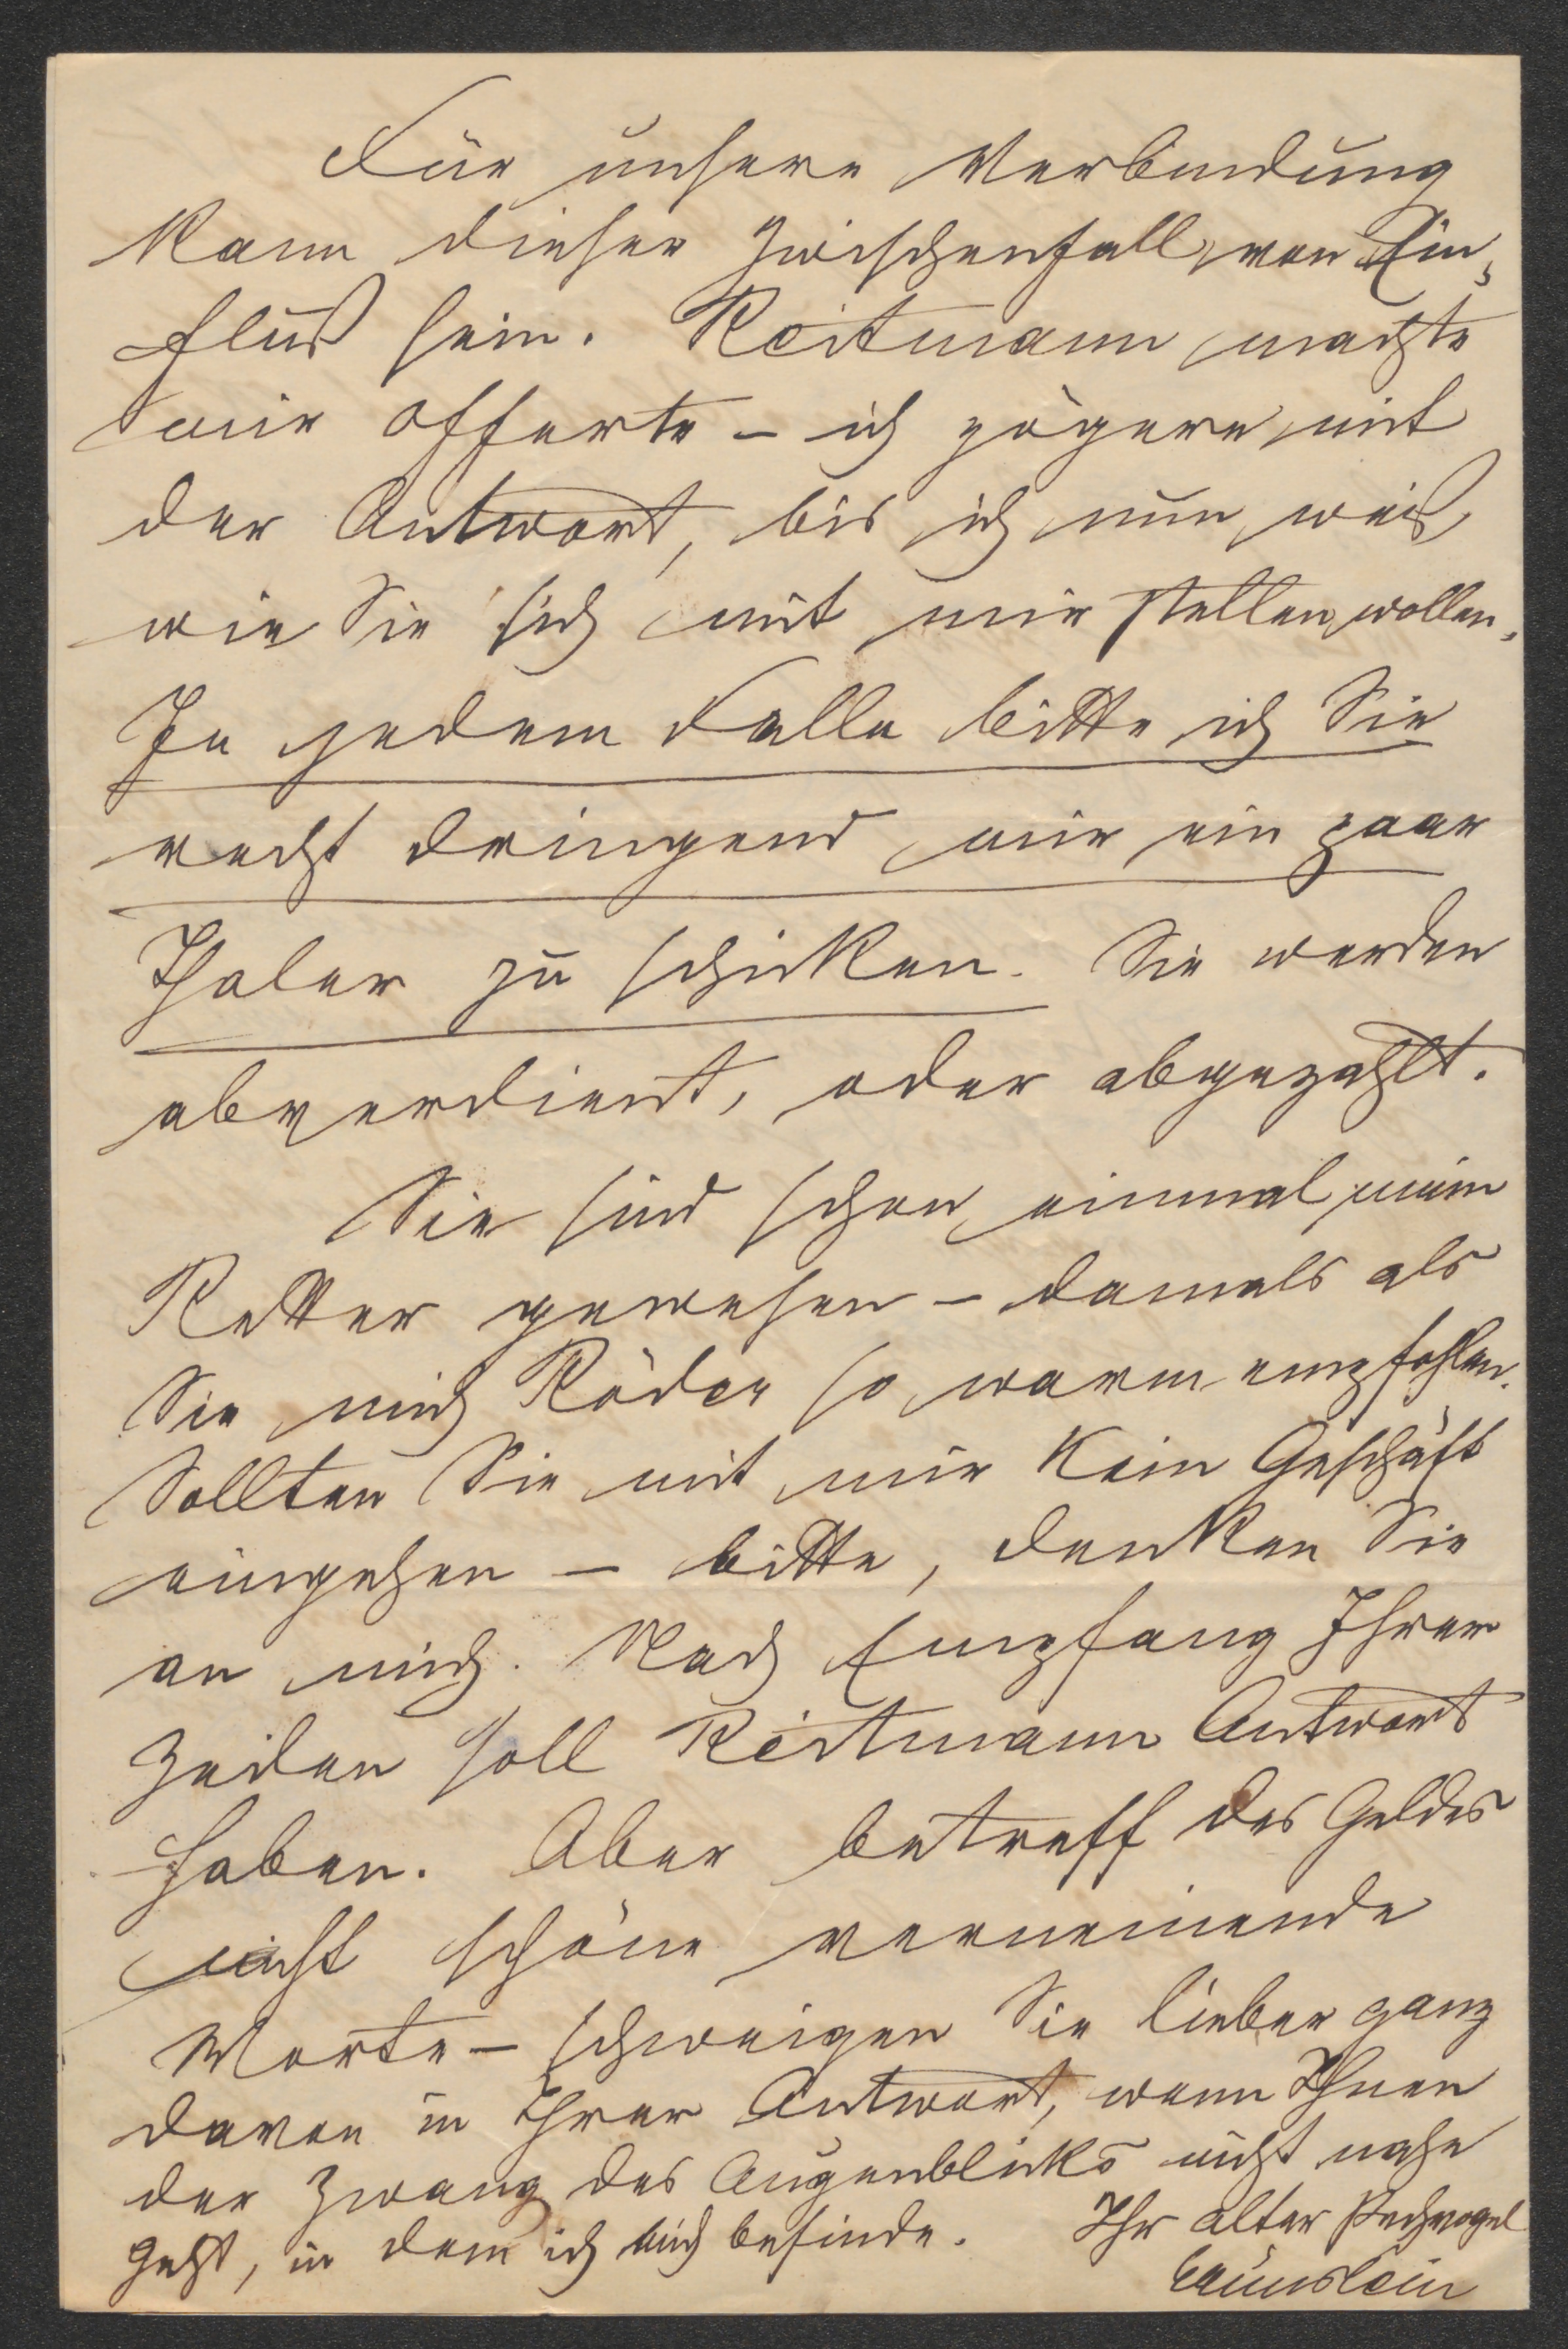 Für unsere Verbindung
kann dieser Zwischenfall von Ein-
fluß sein. Reitmann machte
mir Offerte – ich zögere mit
der Antwort, bis ich nun weiß,
wie Sie sich mit mir stellen wollen.
In jedem Falle bitte ich Sie
recht dringend mir ein paar
Thaler zu schicken. Sie werden
abverdient, oder abgezahlt.
Sie sind schon einmal mein
Retter gewesen – damals als
Sie mich Röder so warm empfohlen.
Sollten Sie mit mir kein Geschäft
eingehen – bitte, denken Sie
an mich. Nach Empfang Ihrer
Zeilen soll Reitmann Antwort
haben. Aber betreff des Geldes
nicht schöne verneinende
Worte – schweigen Sie lieber ganz
davon in Ihrer Antwort, wenn Ihnen
der Zwang des Augenblicks nicht nahe
geht, in dem ich mich befinde. Ihr alter Pechvogel